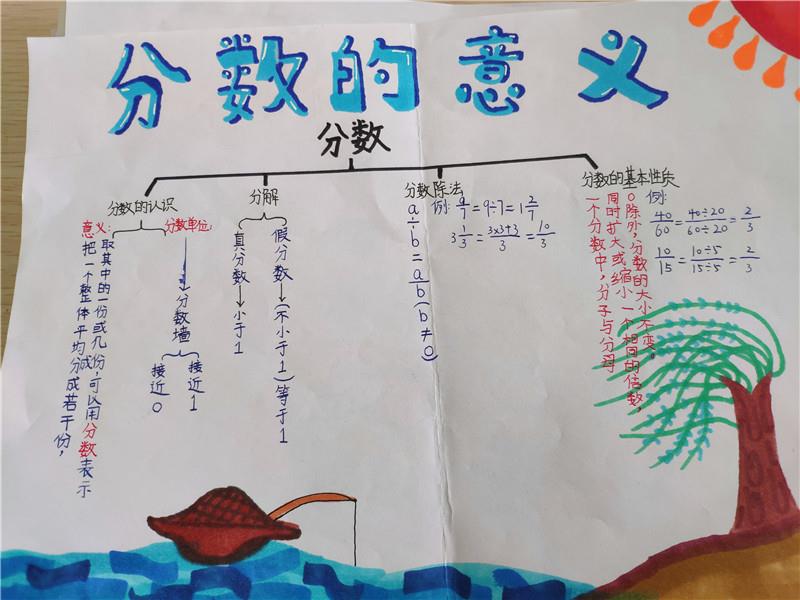 分数的意义
分数
分数的认识
意义：
把一个整体平均分成若干份，
取其中的一份或几份，可以用分数表示
分数单位：
分数墙
接近0
接近1
分解
真分数→小于1
假分数→(不小于1)等于1
分数除法
a÷b=a/b(b≠0)
例：9/7=9÷7=1 2/7
3 1/3=3×3+3/3=10/3
分数的基本性质
一个分数中，分子与分母
同时扩大或缩小一个相同的倍数，
0除外，分数的大小不变。
例：
40/60=40÷20/60÷20=2/3
10/15=10÷5/15÷5=2/3